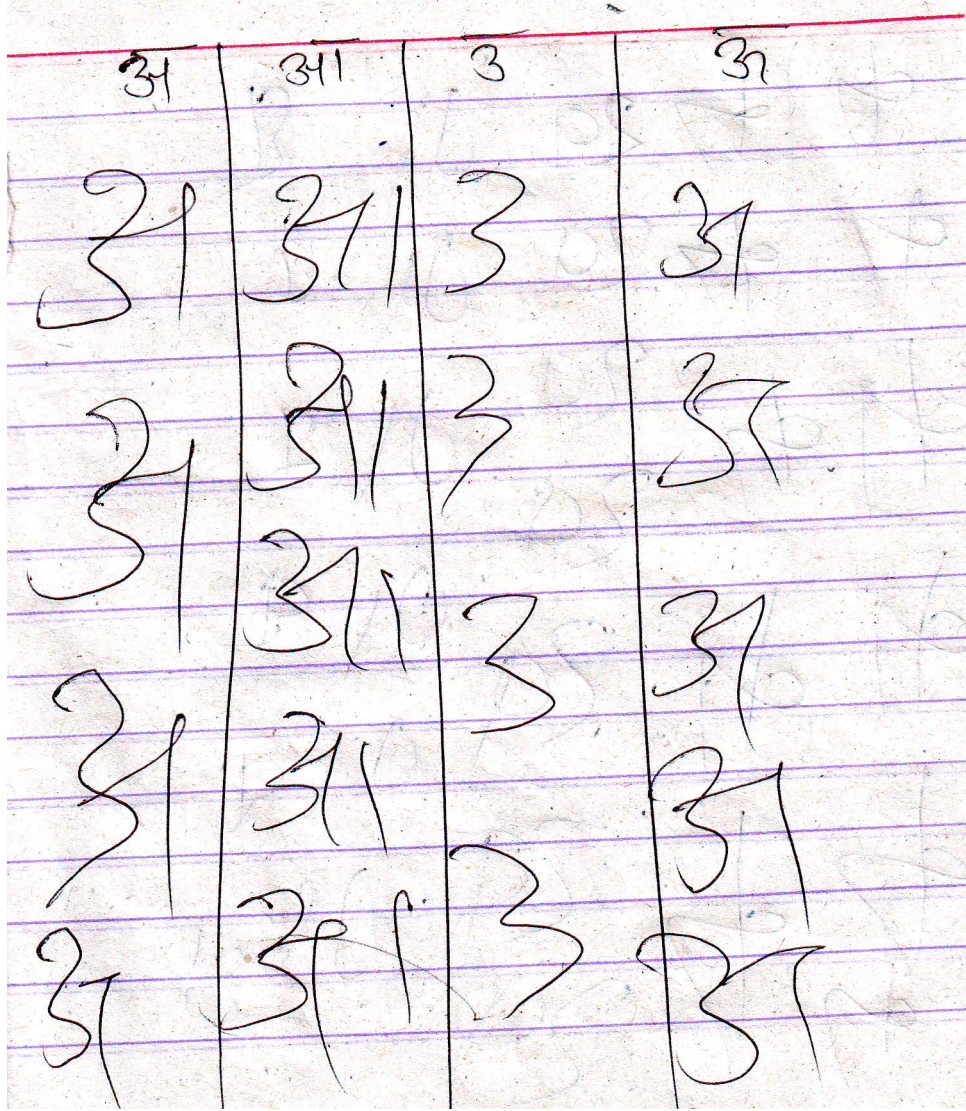 अ आ उ ऊ
अ आ उ ऊ
अ आ उ ऊ
आ उ ऊ
अ आ ऊ
अ आ उ ऊ